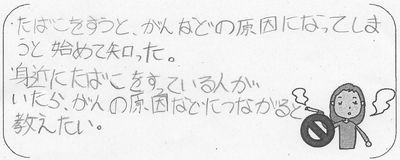 たばこをすうと、がんなどの原因になってしま
うと始めて知った。
身近にたばこをすっている人が
いたら、がんの原因などにつながると
教えたい。